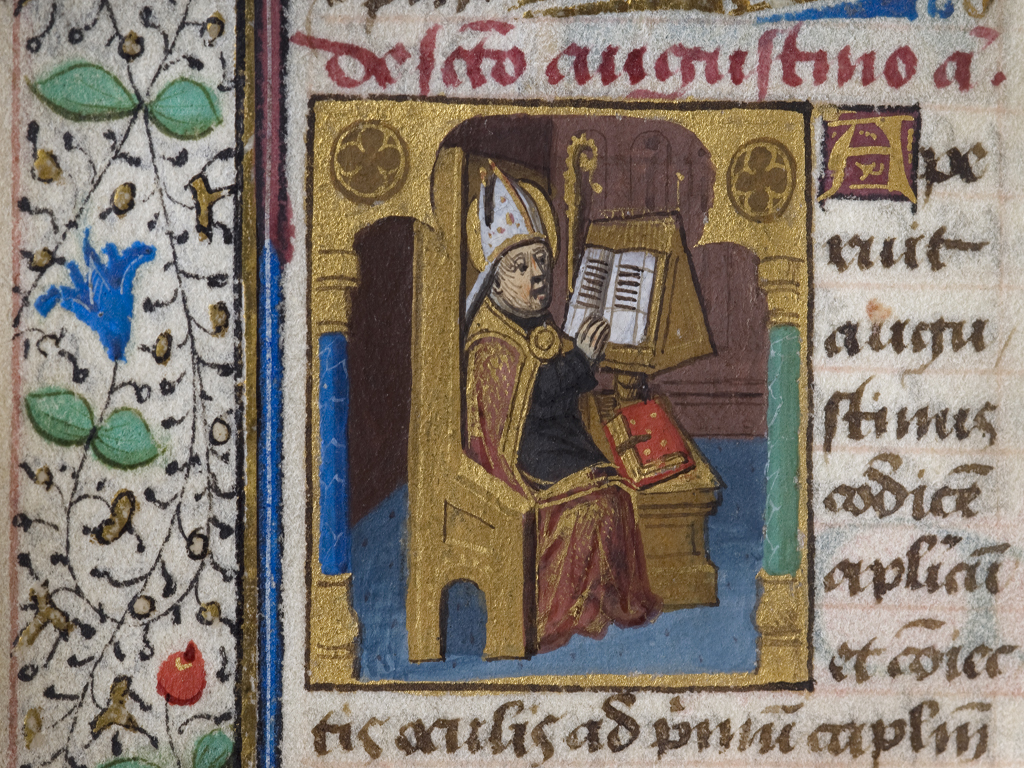 de scō augustino a͞.
Ape
ruit
augu
stinus
codicē
aplicū
et cōiec
tis oculis ad p̄mū caplm̄